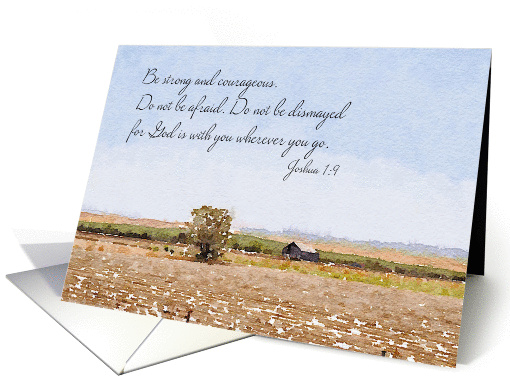 Be strong and courageous.
Do not be afraid. Do not be dismayed
for God is with you wherever you go.
Joshua 1:9